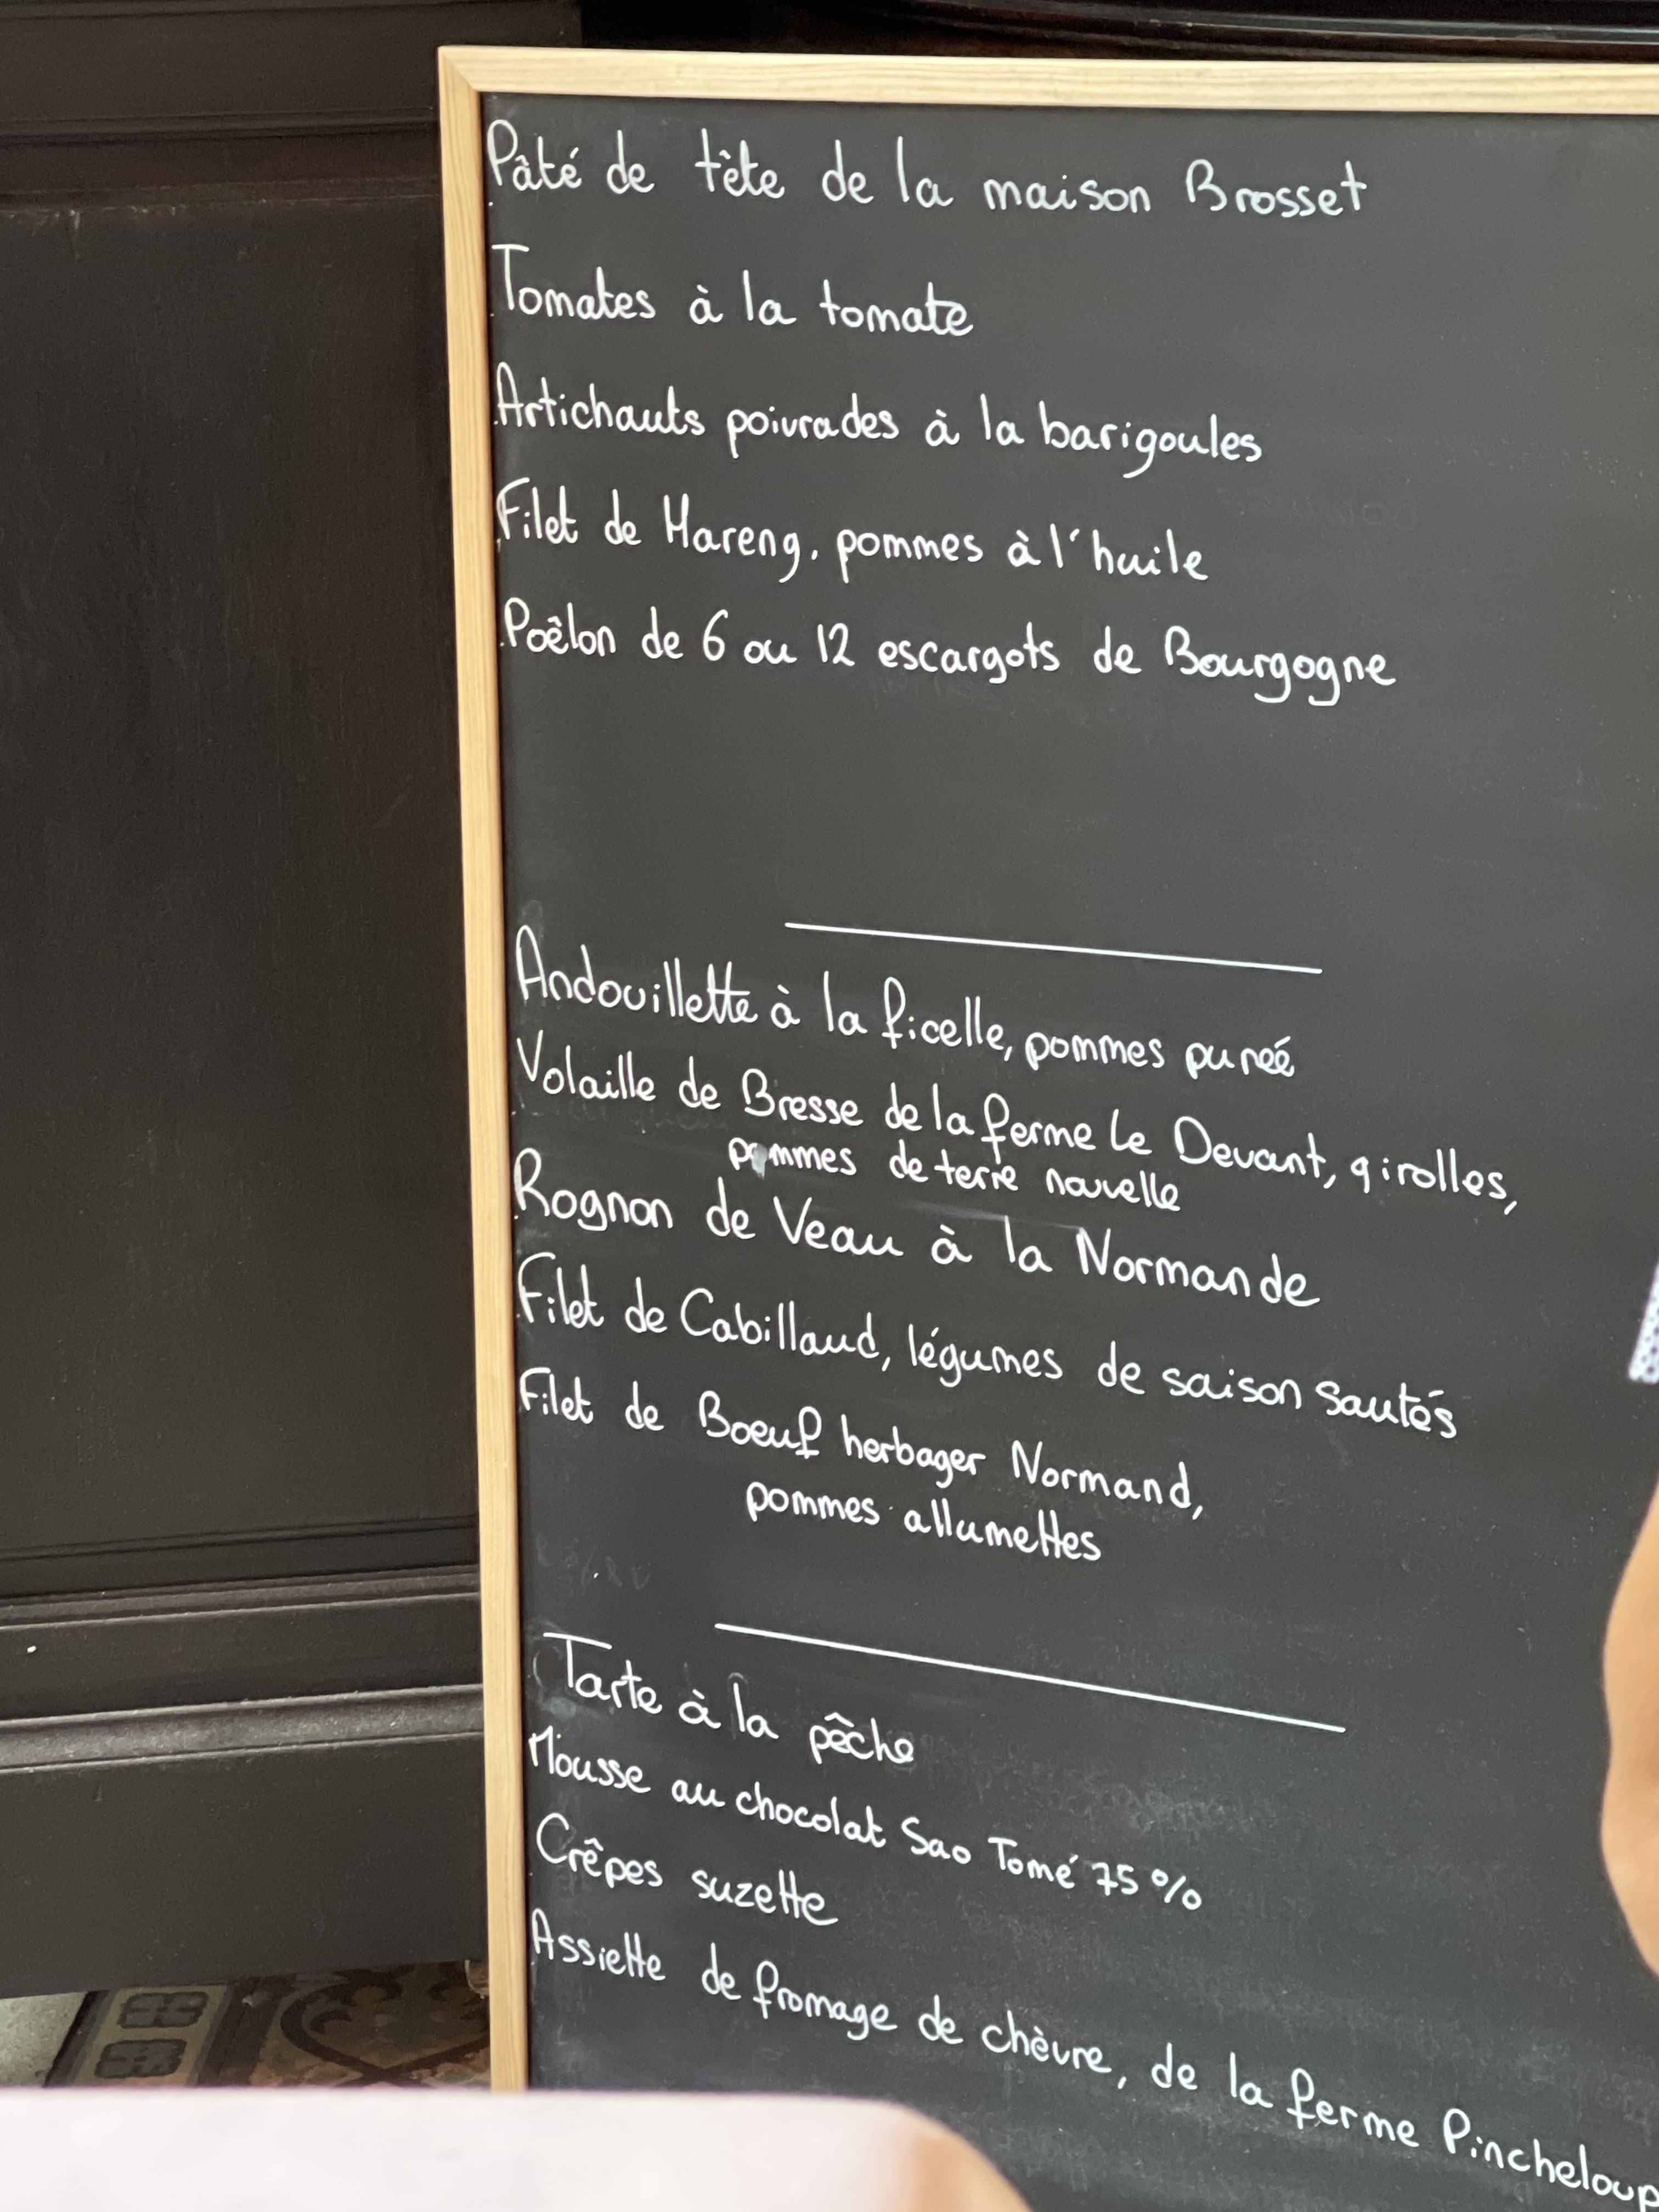 Pâté de tête de la maison Brosset
Tomates à la tomate
Artichauts poivrades à la barigoules
Filet de Hareng, pommes à l'huile
Poêlon de 6 ou 12 escargots de Bourgogne
Andouillette à la ficelle, pommes pureé
Volaille de Bresse de la ferme Le Devant, girolles,
pommes de terre nouvelle
Rognon de Veau à la Normande
Filet de Cabillaud, légumes de saison sautés
Filet de Boeuf herbager Normand,
pommes allumettes
Tarte à la pêche
Mousse au chocolat Sao Tomé 75%
Crêpes suzette
Assiette de fromage de chèvre, de la ferme Pincheloup